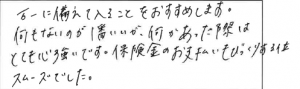 万一に備えて入ることをおすすめします。
何もないのが1番いいが、何かあった際は
とても心強いです。保険金のお支払いもびっくりする位
スムーズでした。